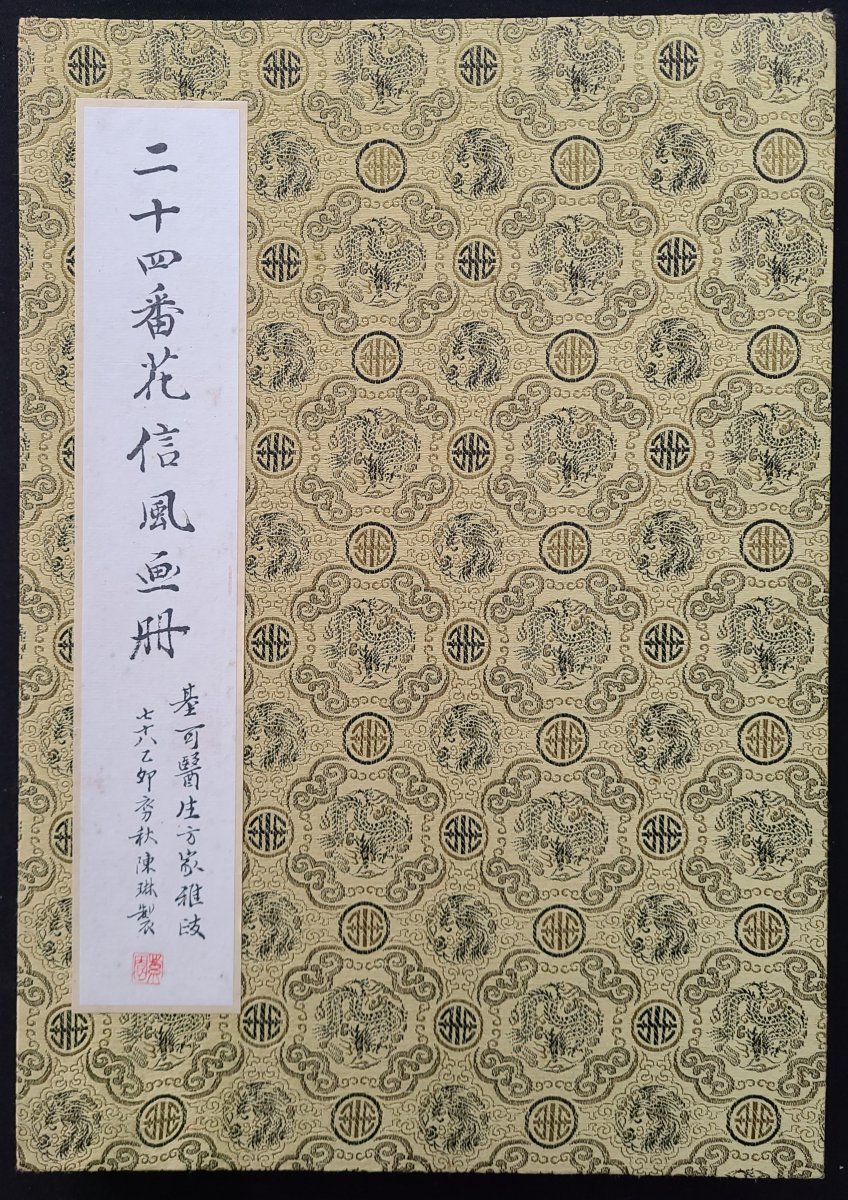 二十四番花信風画册
基可醫生方家雅政
七十八乙卯秀秋陳琳製